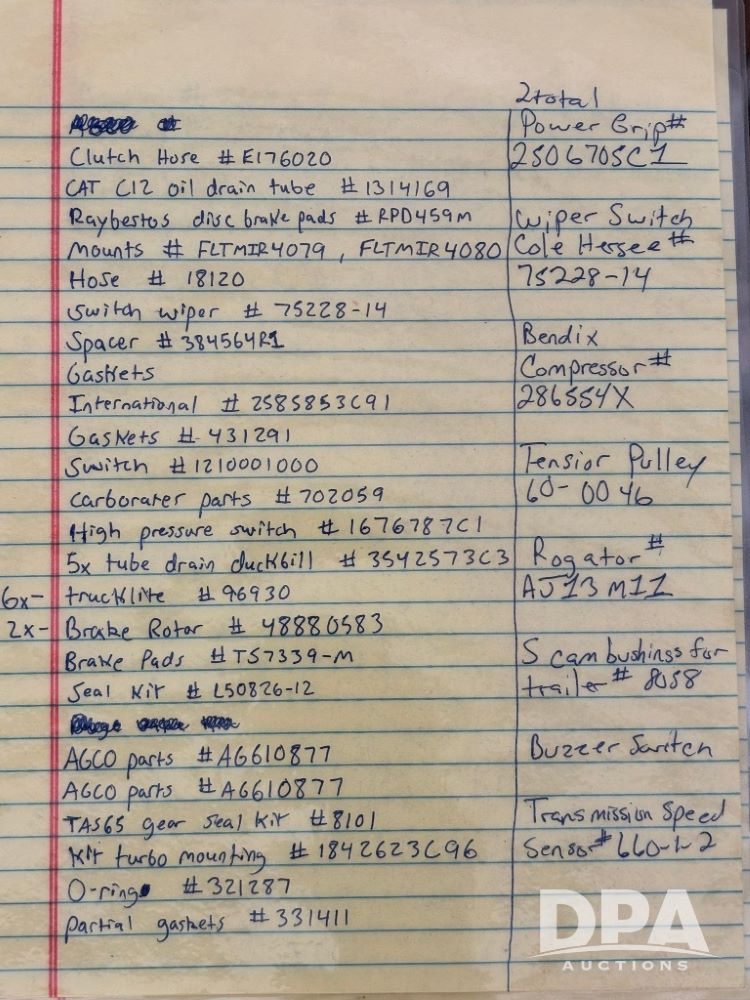 Clutch Hose # E176020
CAT C12 oil drain tube # 1314169
Raybestos disc brake pads # RPD459M
Mounts # FLTMIR4079, FLTMIR4080
Hose # 18120
Switch wiper # 75228-14
Spacer # 384564R1
Gaskets
International # 2585853C91
Gaskets # 431291
Switch # 1210001000
Carborater parts # 702059
High pressure switch # 1676787C1
5x tube drain duckbill # 3542573C3
6x- trucklite # 96930
2x- Brake Rotor # 48880583
Brake Pads # TS7339-M
Seal Kit # L50826-12
AGCO parts # AG610877
AGCO parts # AG610877
TAS65 gear seal kit # 8101
Kit turbo mounting # 1842623C96
O-ring # 321287
partial gaskets # 331411
2total
Power Grip #
2506705C1
Wiper Switch
Cole Hersee #
75228-14
Bendix
Compressor #
286554X
Tensior Pulley
60-0046
Rogator #
AJ13 M11
S cam bushings for
trailer # 8058
Buzzer Switch
Transmission Speed
Sensor # 660-1-2
DPA
AUCTIONS